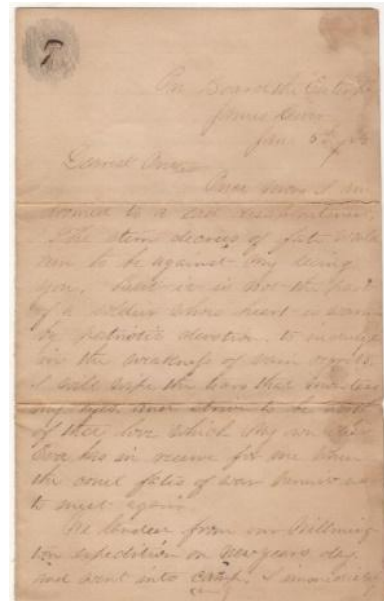 On Board the
James River
Jan. 5th
Dearest
Once more I am
doomed to a sad disappointment.
The stern decrees of fate would
seem to be against my being
you. But it is not the part
of a soldier whose heart is warm
by patriotic devotion, to indulge
in the weakness of vain
I will wipe the tears that
my eyes, and strive to be worthy
of that love which my own
has in reserve for me when
the cruel fates of war permit us
to meet again.
We landed from our Wilming
ton expedition on New years day
and went into camp. I immediately